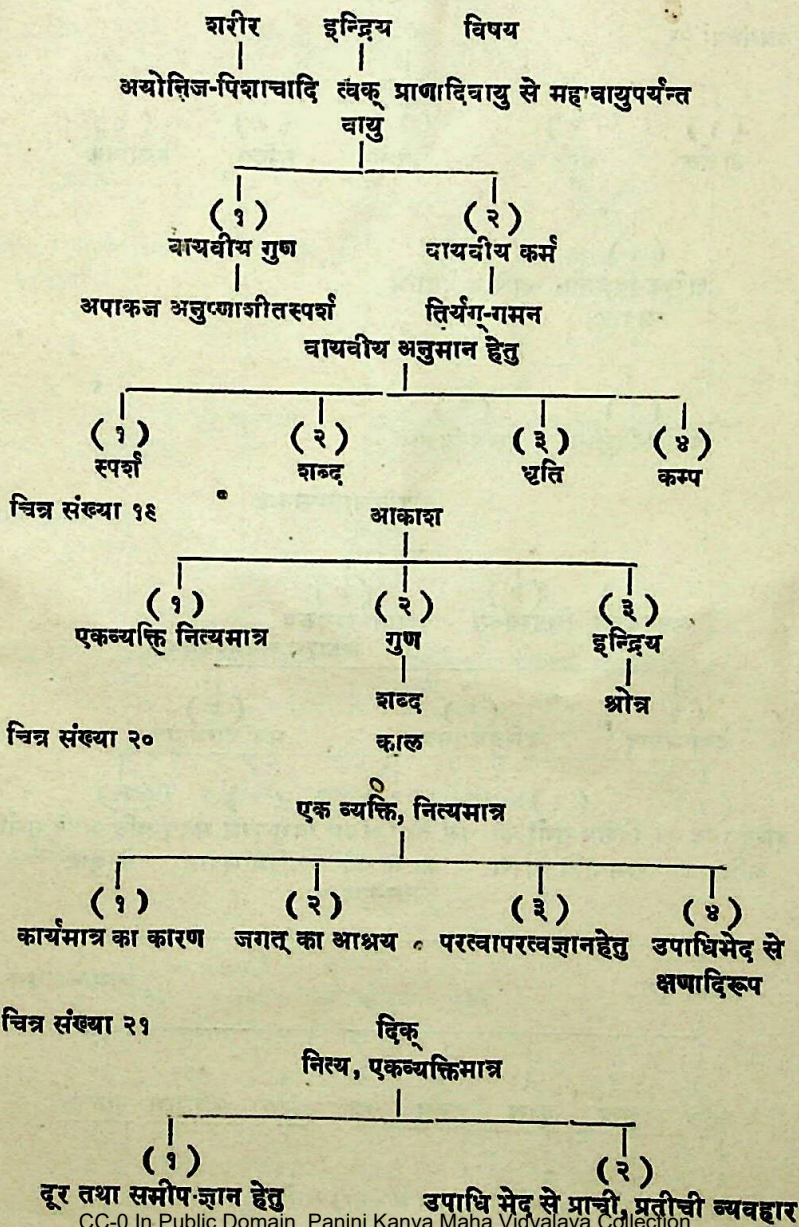 शरीर इन्द्रिय विषय
अयोनिज-पिशाचादि त्वक् प्राणादिवायु से महावायुपर्यन्त
वायु
( १ ) ( २ )
वायवीय गुण वायवीय कर्म
अपाकज अनुष्णाशीतस्पर्श तिर्यग्-गमन
वायवीय अनुमान हेतु
( १ ) ( २ ) ( ३ ) ( ४ )
स्पर्श शब्द धृति कम्प
चित्र संख्या १९ आकाश
( १ ) ( २ ) ( ३ )
एकव्यक्ति नित्यमात्र गुण इन्द्रिय
शब्द श्रोत्र
चित्र संख्या २० काल
एक व्यक्ति, नित्यमात्र
( १ ) ( २ ) ( ३ ) ( ४ )
कार्यमात्र का कारण जगत् का आश्रय परत्वापरत्वज्ञानहेतु उपाधिभेद से
क्षणादिरूप
चित्र संख्या २१ दिक्
नित्य, एकव्यक्तिमात्र
( १ ) ( २ )
दूर तथा समीप-ज्ञान हेतु उपाधि भेद से प्राची, प्रतीची व्यवहार
CC-0 In Public Domain. Panini Kanya Maha Vidyalaya Collection